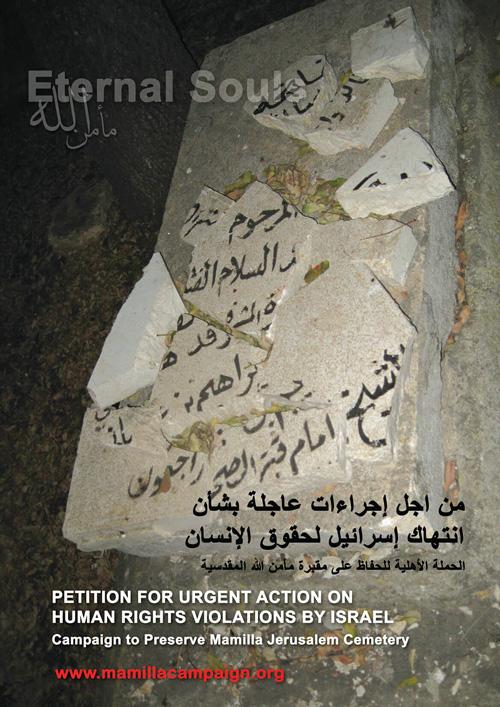 Eternal Souls
مأمن الله
المرحوم
السلام
امام قبة الصخ
الشيخ
من اجل إجراءات عاجلة بشأن
انتهاك إسرائيل لحقوق الإنسان
الحملة الأهلية للحفاظ على مقبرة مأمن الله المقدسية
PETITION FOR URGENT ACTION ON
HUMAN RIGHTS VIOLATIONS BY ISRAEL
Campaign to Preserve Mamilla Jerusalem Cemetery
www.mamillacampaign.org